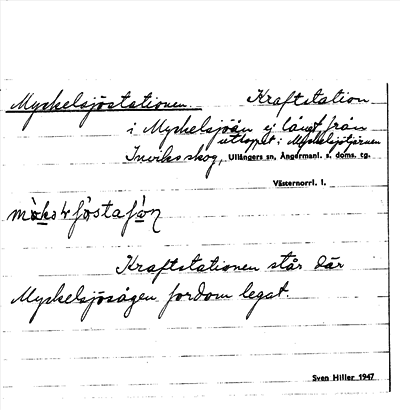 Myckelsjöstationen. Kraftstation
i Myckelsjöån ej långt från
utloppet i Myckelsjötjärnen
Inviks skog, Ullångers sn, Ångermanl. s. doms. tg.
Västernorrl. l.
Kraftstationen står där
Myckelsjösågen fordom legat.
Sven Hiller 1947